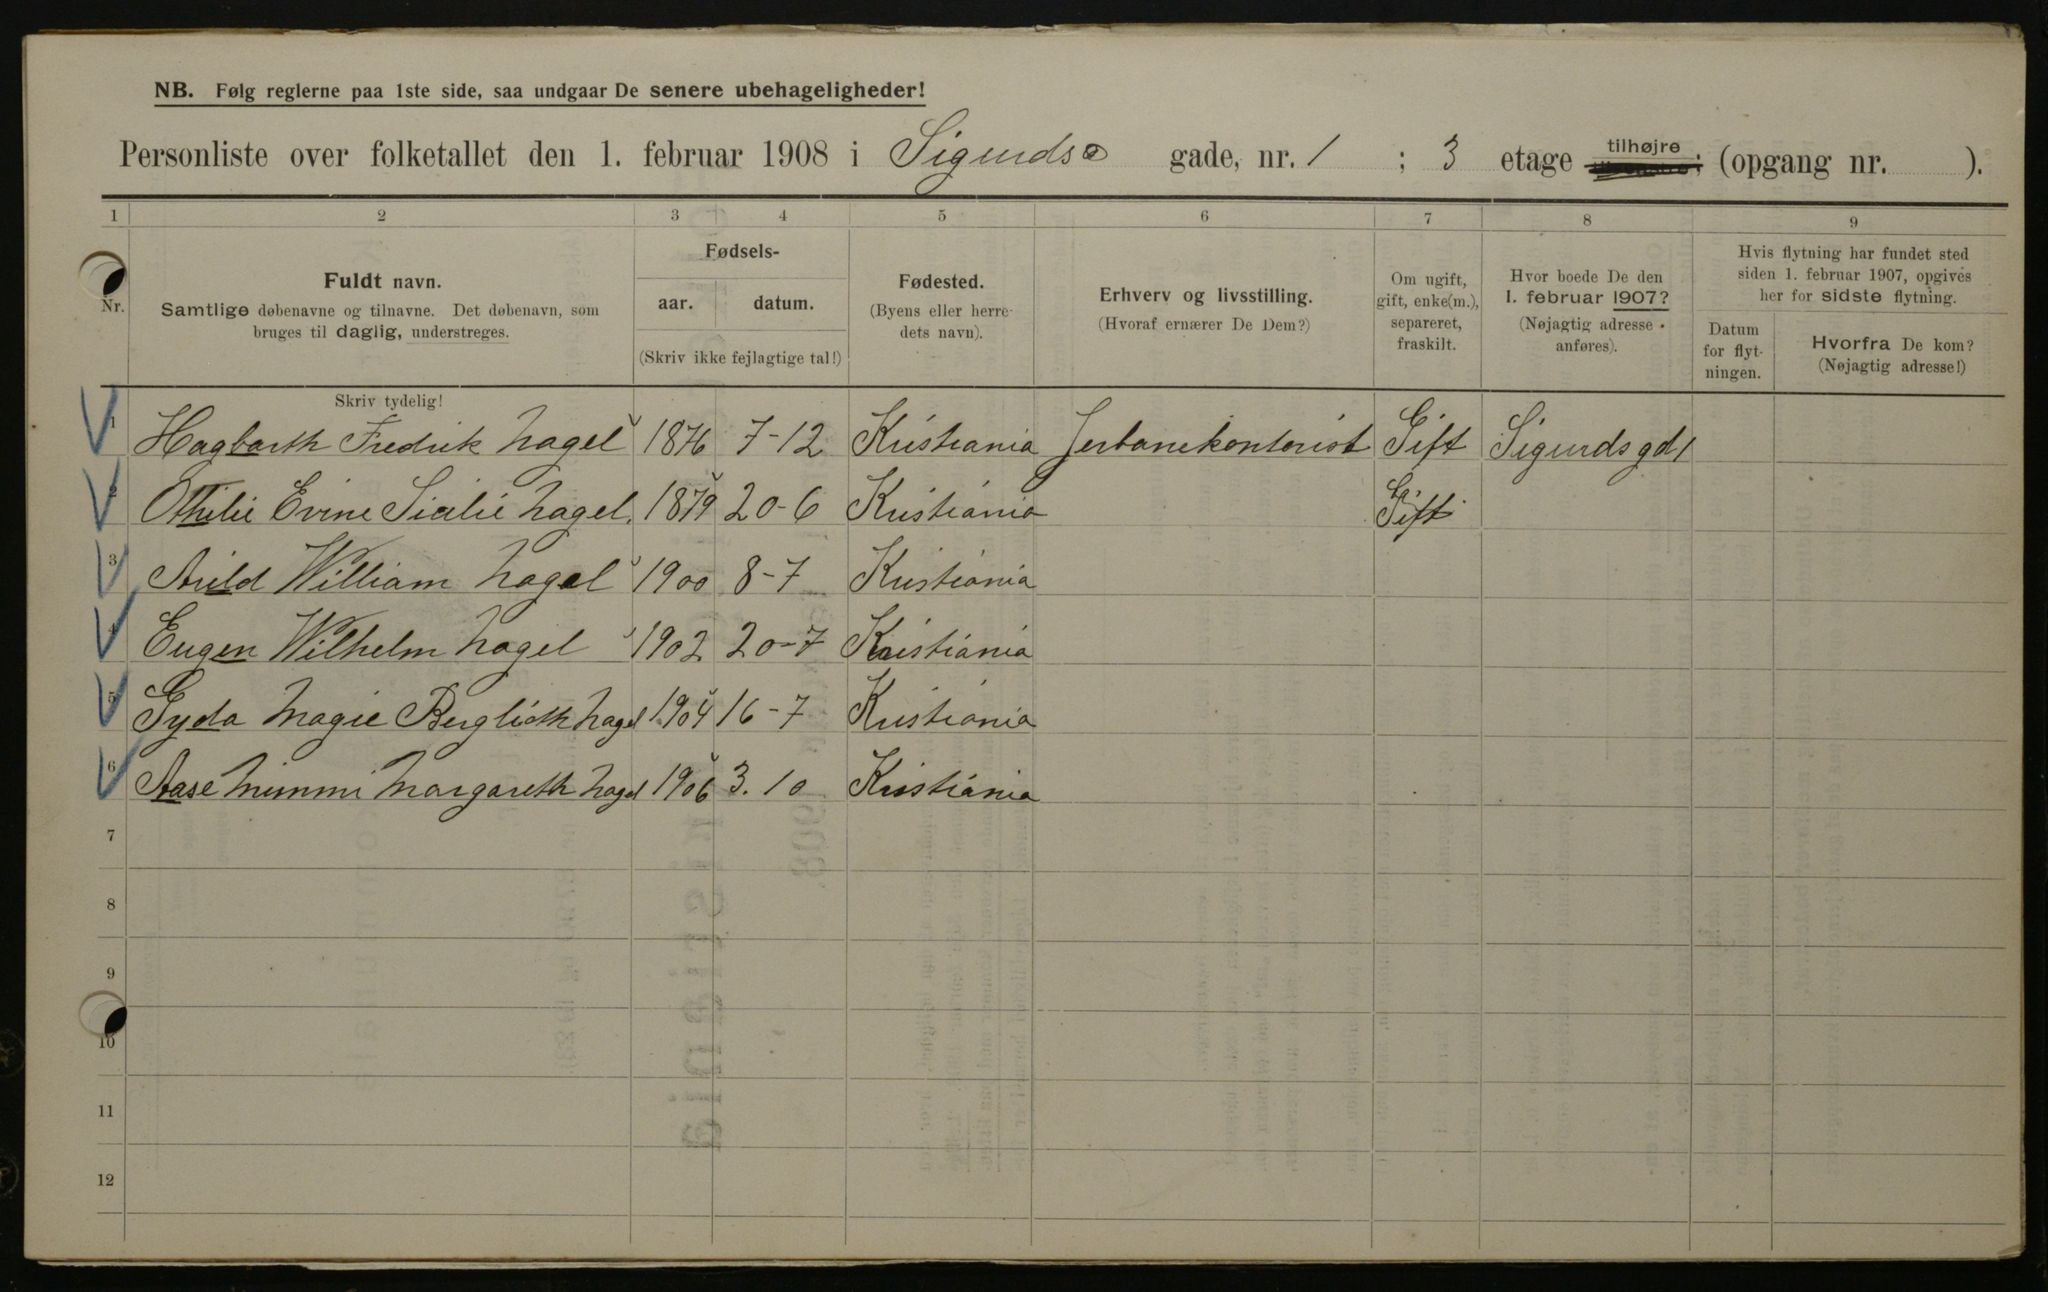 NB. Følg reglerne paa 1ste side, saa undgaar De senere ubehageligheder!
Personliste over folketallet den 1. februar 1908 i Sigurds gade, nr. 1 ; 3 etage tilhøjre ; (opgang nr. ).
1 2 3 4 5 6 7 8 9
Nr.
Fuldt navn.
Samtlige døbenavne og tilnavne. Det døbenavn, som
bruges til daglig, understreges.
Fødsels-
aar. datum.
(Skriv ikke fejlagtige tal!)
Fødested.
(Byens eller herre-
dets navn).
Erhverv og livsstilling.
(Hvoraf ernærer De Dem?)
Om ugift,
gift, enke(m.),
separeret,
fraskilt.
Hvor boede De den
1. februar 1907?
(Nøjagtig adresse
anføres).
Hvis flytning har fundet sted
siden 1. februar 1907, opgives
her for sidste flytning.
Datum
for flyt-
ningen.
Hvorfra De kom?
(Nøjagtig adresse!)
Skriv tydelig!
1 Hagbarth Fredrik Nagel 1876 7-12 Kristiania Jerbanekontorist Gift Sigurdsgd 1
2 Othilie Evine Sicilie Nagel. 1879 20-6 Kristiania Gift
3 Arild William Nagel 1900 8-7 Kristiania
4 Eugen Wilhelm Nagel 1902 20-7 Kristiania
5 Gyda Magie Berglioth Nagel 1904 16-7 Kristiania
6 Aase Mimmi Margareth Nagel 1906 3.10 Kristiania
7
8
9
10
11
12